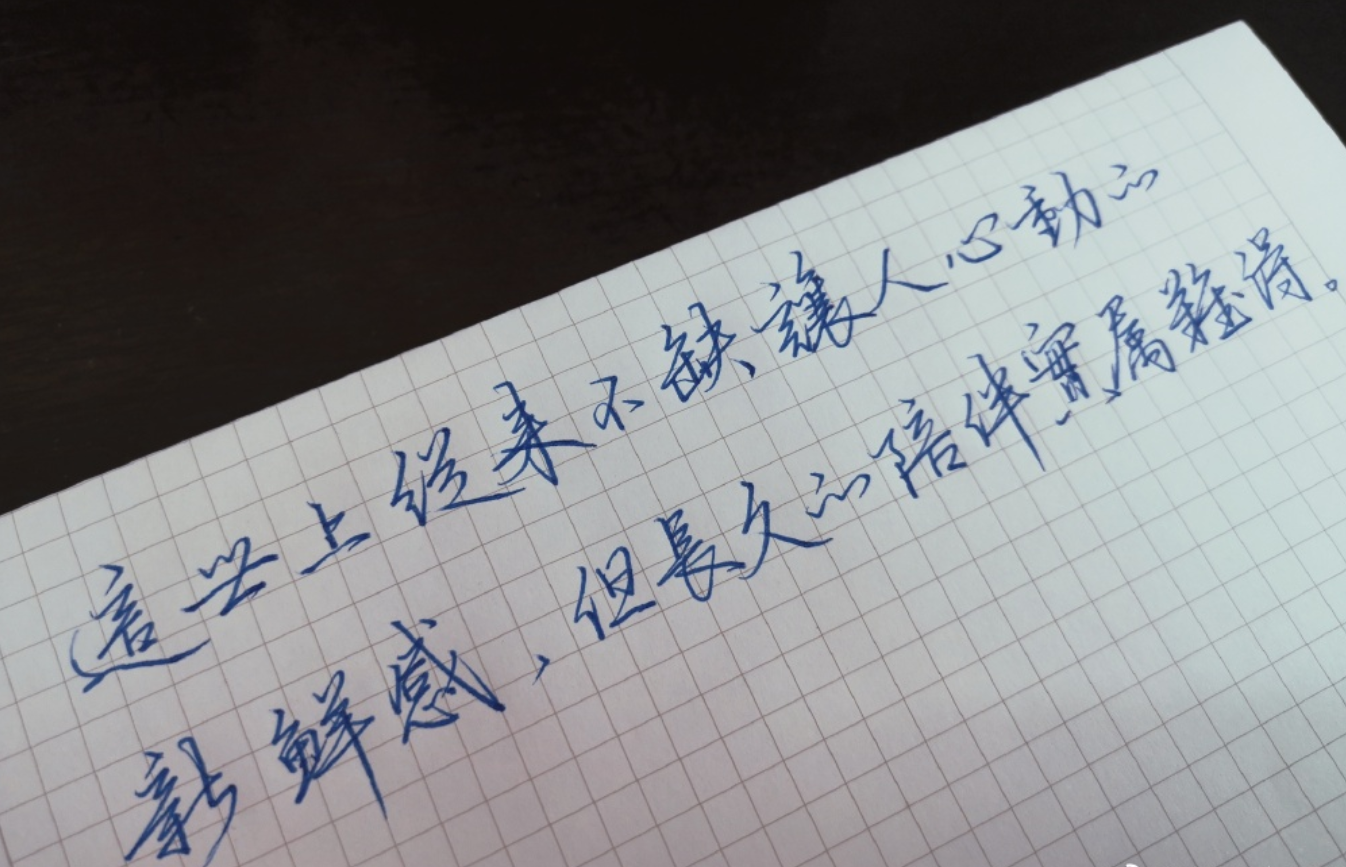 這世上從来不缺讓人心動的
新鮮感,但長久的陪伴實属難得。